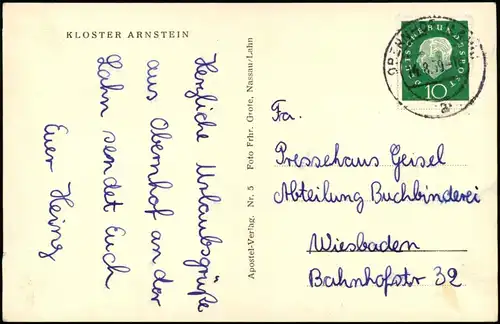 KLOSTER ARNSTEIN
Herzliche Urlaubsgrüße
aus Obernhof an der
Lahn sendet Euch
Euer Heinz
Apostel-Verlag. Nr. 5 Foto Frhr. Grote, Nassau/Lahn
DEUTSCHE BUNDESPOST
10
a
Fa.
Pressehaus Geisel
Abteilung Buchbinderei
Wiesbaden
Bahnhofstr 32